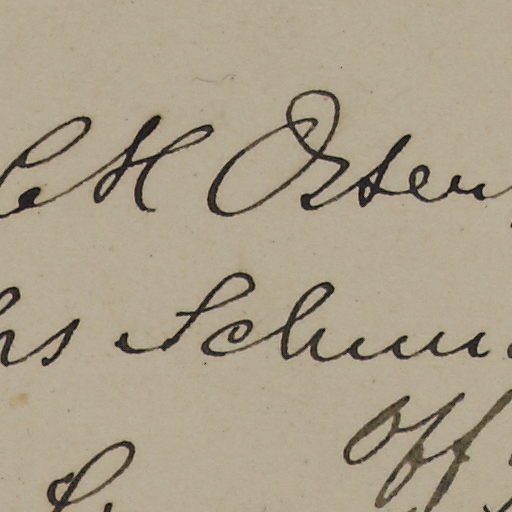 C H Orten
hs Schum
Off